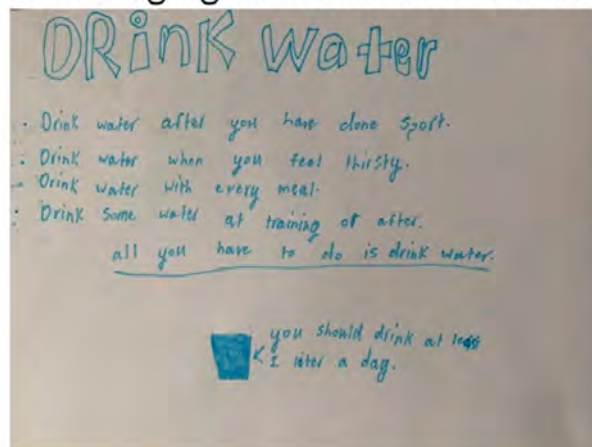 DRinK Water
· Drink water after you have done sport.
· Drink water when you feel thirsty.
- Drink water with every meal.
· Drink some water at training or after.
all you have to do is drink water.
you should drink at least
1 liter a day.